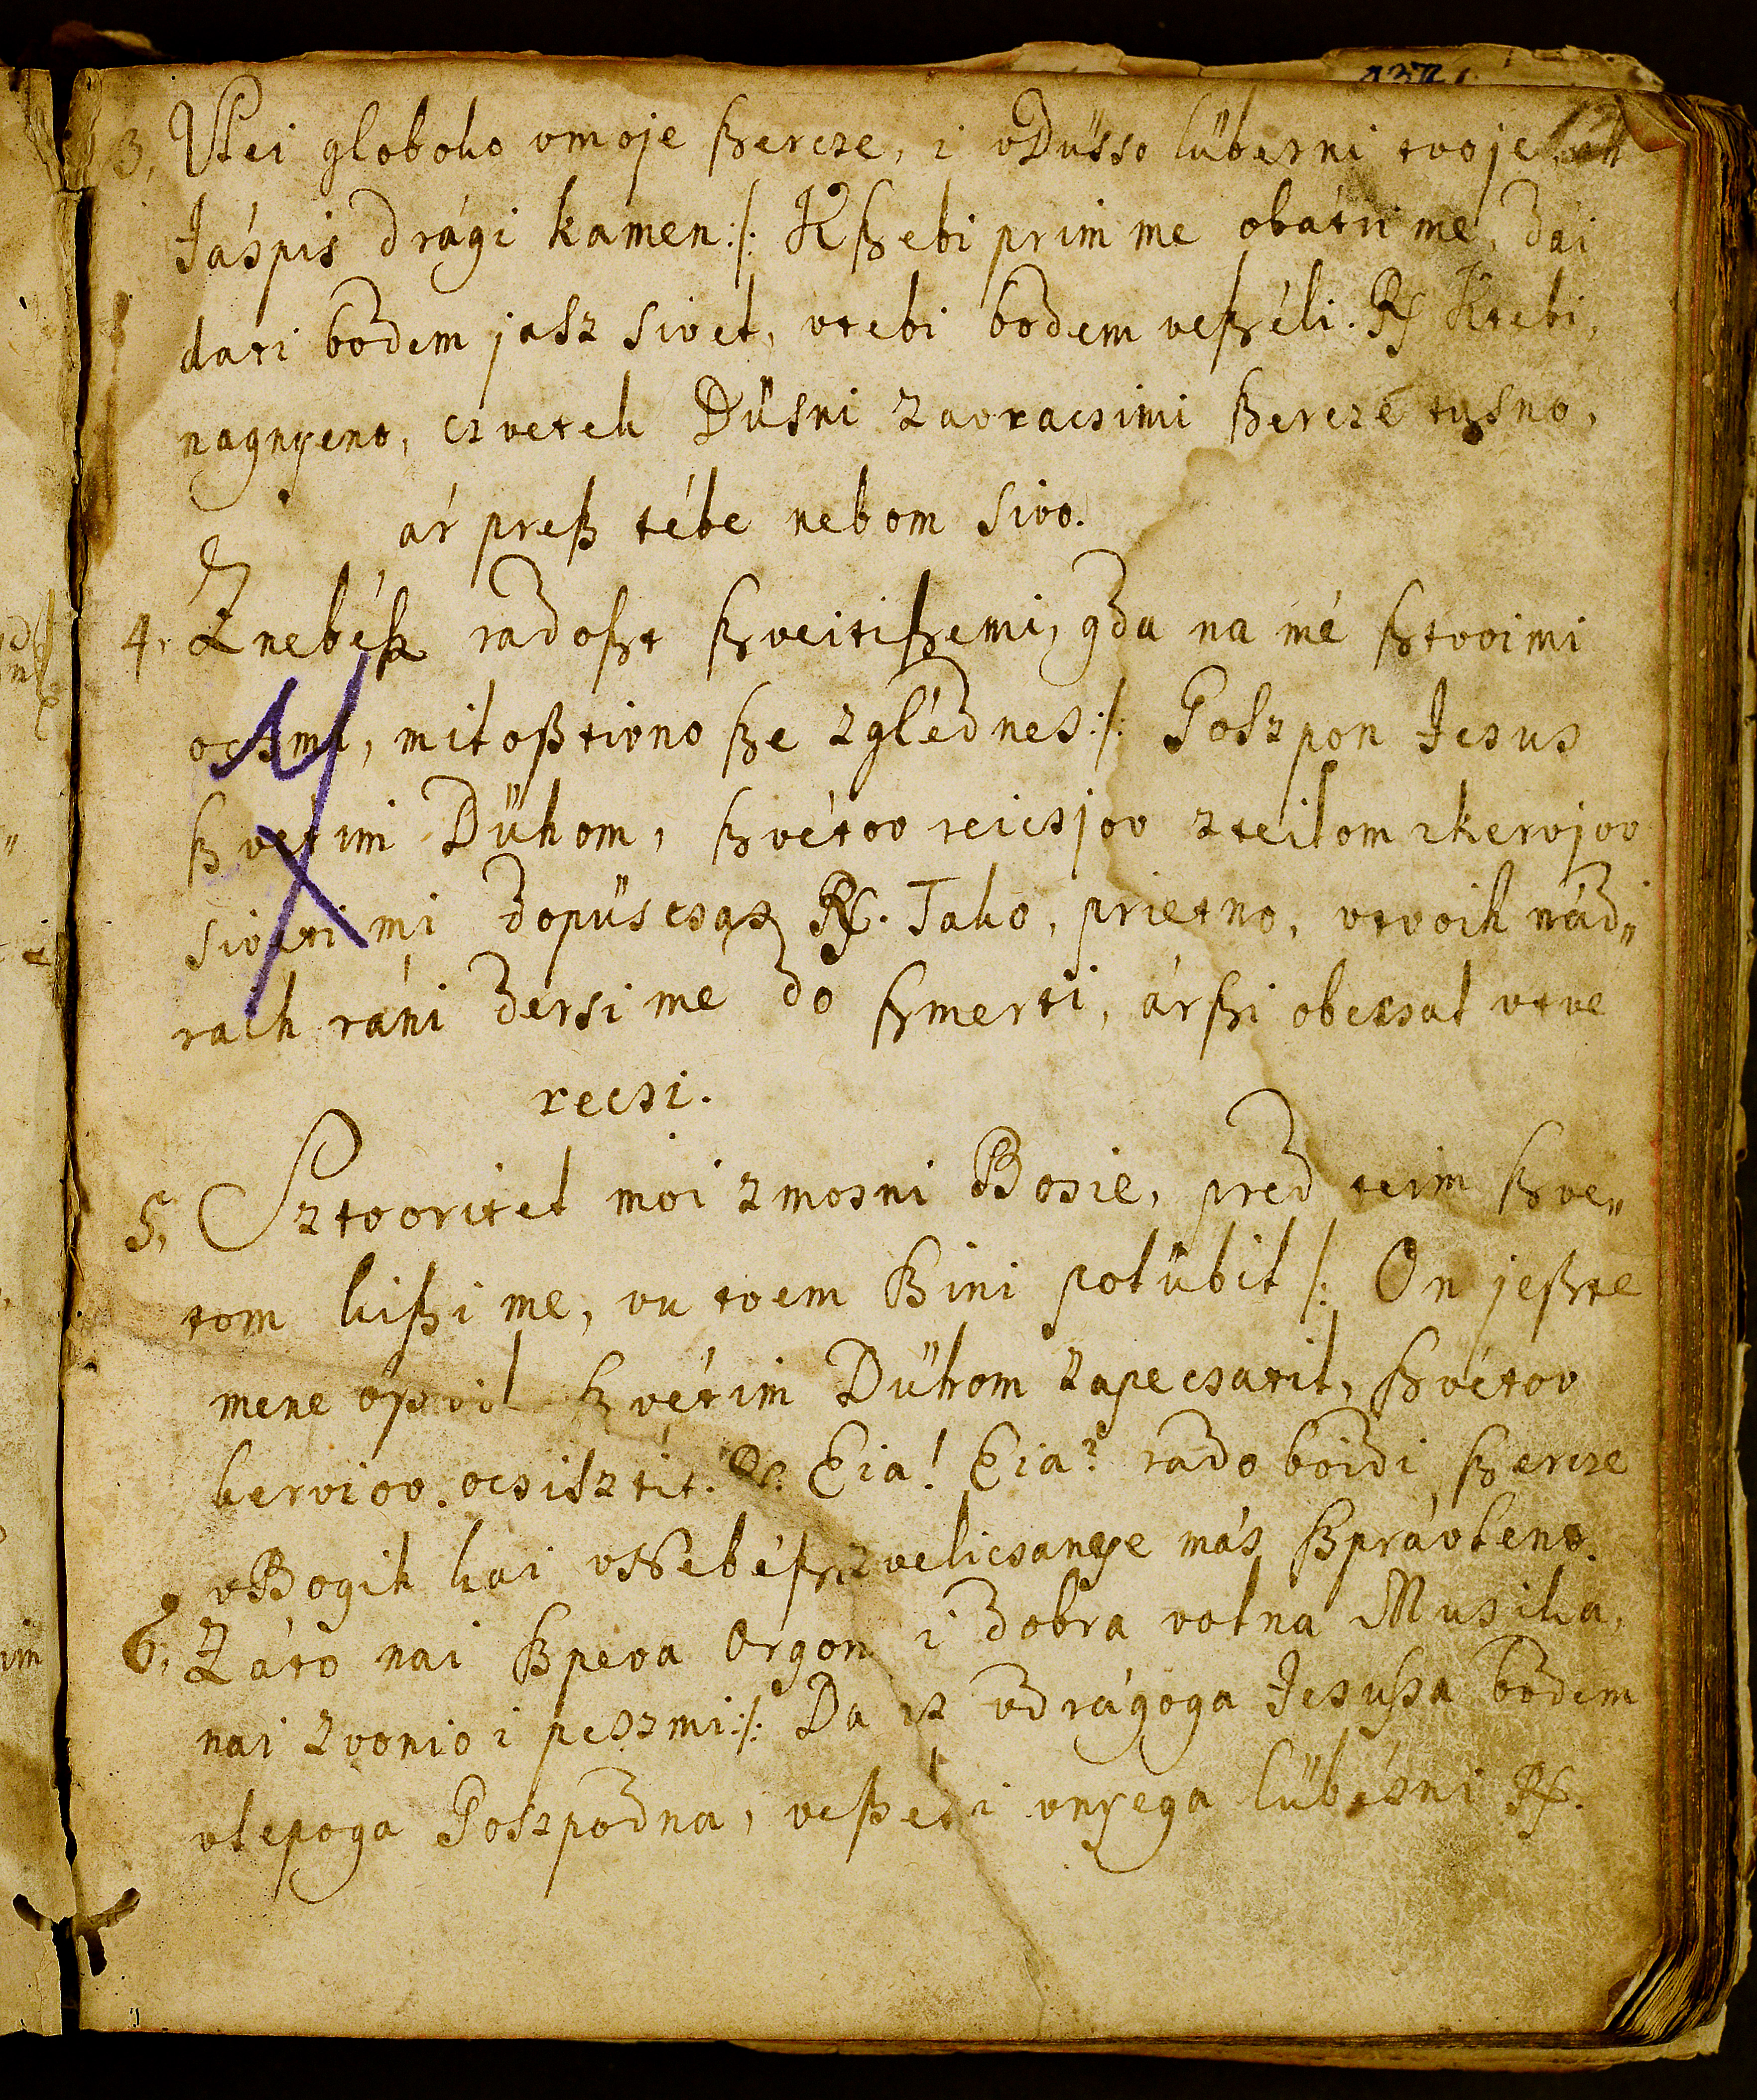 3, Vlei globoko vmoje ßercze, i vDüsso lübezni tvoje, ah
Jáspis drági kamen :/: Kßebi prim me obátri me, dai
dati bodem jasz sivet, vtebi bodem veßéli. R/ Ktebi,
nagnyeno, czvetek Düsni zavracsimi ßercze tusno,
ár preß tébe nebom sivo.
4, Znebéß radoßt ßveitißemi, gda na mé ßtvoimi
ocsmi, miloßtivno ße zglédnes :/: Goszpon Jesus
ßvetim Dühom, ßvétov reicsjov zteilom zkervjov
sivéti mi dopüscsaß R/. Tako, prietno, vtvoih nád„
raih ráni dersi me do ßmerti, árßi obecsal vtve
recsi.
5, Sztvoritel moi zmosni Bosie, pred teim ßve„
tom kißi me, vu tvem ßini polübil /: On jeßte
mene opravil ßvétim Dühom zapecsatil, ßvétov
kervjov. ocsisztil. R/. Eia! Eia! rado boidi ßercze
vBogih kai vNebéßaj velicsanye más ßprávleno.
6, Záto nai ßpeva Orgon i dobra volna Musika,
nai zvonio i peszmi :/: Da iz vdrágoga Jesußa bodem
vlepoga Goszpodna, veßéli vnyega lübézni R/.